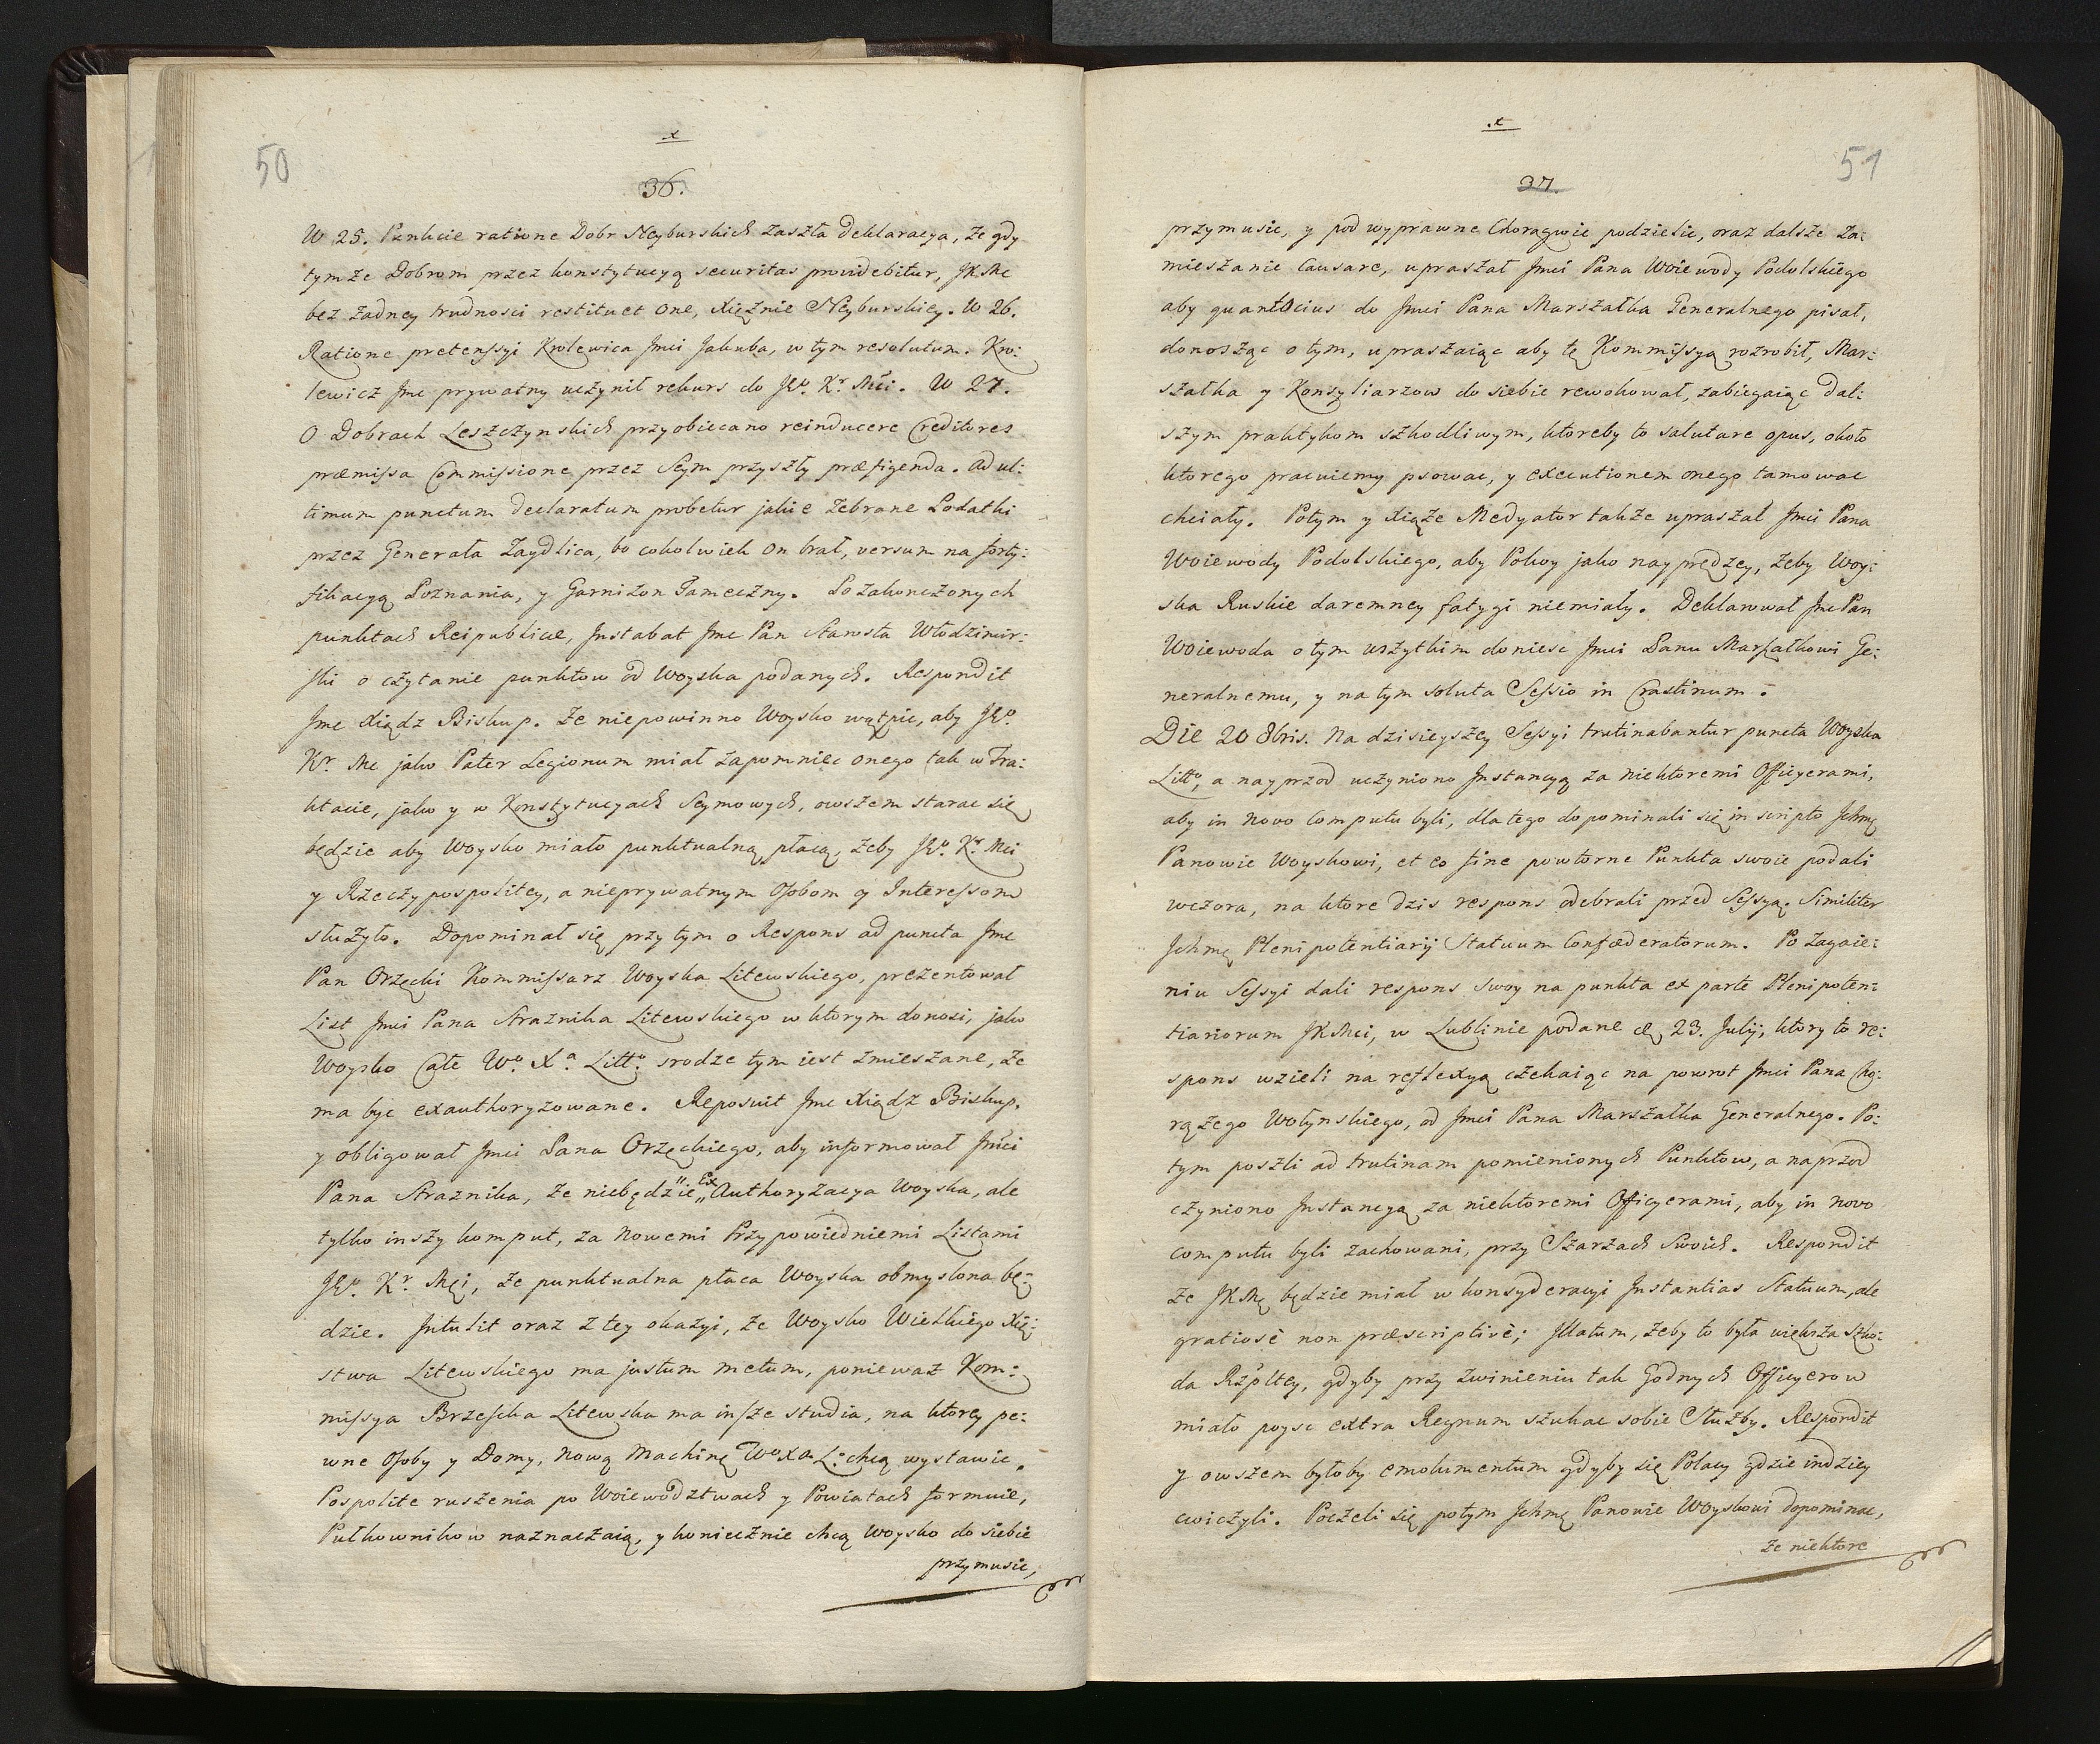 x
50
36.
W 25. Punkcie ratione Dobr Neyburskich zaszła deklaracya, że gdy
tymże Dobrom przez konstytucyą securitas providebitur, JKMc
bez żadney trudnosci restituet one, Xiężnie Neyburskiey. W 26.
Ratione pretenssyi Krolewica Jmci Jakuba, w tym resolutum. Kro:
lewicz Jmc prywatny uczynił rekurs do JEo. Kr. Mći. W 27.
O Dobrach Leszczynskich przyobiecano reinducere Creditores
præmissa Commissione przez Seym przyszły præfigenda. Ad ul:
timum punctum declaratum probetur jakie zebrane Podatki
przez Generała Zaydlica, bo cokolwiek on brał, versum na forty:
fikacyą Poznania, y Garnizon Tameczny. Po zakonczonych
punktach Reipublicæ, Instabat Jmc Pan Starosta Włodzimir:
ski o czytanie punktow od Woyska podanych. Respondit
Jmc Xiądz Biskup. Że niepowinno Woysko wątpic, aby JEo.
Kr. Mc jako Pater Legionum miał zapomniec onego tak w Tra:
ktacie, jako y w Konstytucyach Seymowych, owszem starac się
będzie aby Woysko miało punktualną płacą, żeby JEo. Kr. Mci
y Rzeczypospolitey, a nieprywatnym Osobom y Interessom
służyło. Dopominał się przy tym o Respons ad puncta Jmc
Pan Orzęcki Kommissarz Woyska Litewskiego, prezentował
List Jmci Pana Straznika Litewskiego w ktorym donosi, jako
Woysko Całe Wo. Xa. Litto. srodze tym iest zmieszane, że
ma byc exauthoryzowane. Reposuit Jmc Xiądz Biskup,
y obligował Jmci Pana Orzęckiego, aby informował Jmći
Pana Straznika, że niebędzie Ex Authoryzacya Woyska, ale
tylko inszy komput, za nowemi Przypowiedniemi Listami
JEo. Kr. Mći, że punktualna płaca Woyska obmyslona bę:
dzie. Intulit oraz z tey okazyi, że Woysko Wielkiego Xię:
stwa Litewskiego ma justum metum, poniewaz Kom:
missya Brzescka Litewska ma insze studia, na ktorey pe:
wne Osoby y Domy, nową machinę Wo Xa L: chcą wystawic.
Pospolite ruszenia po Woiewodztwach y Powiatach formuie,
Pułkownikow naznaczaią, y koniecznie chcą Woysko do siebie
przymusic,
x
51
37.
przymusic, y pod wyprawne Chorągwie podzielic, oraz dalsze za:
mieszanie causare, upraszał Jmci Pana Woiewody Podolskiego
aby quantocius do Jmci Pana Marszałka Generalnego pisał,
donosząc o tym, upraszaiąc aby tę Kommissyą rozrobił, Mar:
szałka y Konsyliarzow do siebie rewokował, zabiegaiąc dal:
szym praktykom szkodliwym, ktoreby to salutare opus, około
ktorego pracuiemy psowac, y executionem onego tamowac
chciały. Potym y Xiąże Medyator także upraszał Jmci Pana
Woiewody Podolskiego, aby Pokoy jako nayprędzey, żeby Woy:
ska Ruskie daremney fatygi niemiały. Deklarował Jmc Pan
Woiewoda o tym wszytkim doniesc Jmci Panu Marszałkowi Ge:
neralnemu, y na tym soluta Sessio in Crastinum.
Die 20 8bris. Na dzisieyszey Sessyi trutinabantur puncta Woyska
Litto, a nayprzod uczyniono Instancyą za niektoremi Officyerami,
aby in novo Computu byli, dla tego dopominali się in scripto Ichmę
Panowie Woyskowi, et eo fine powtorne Punkta swoie podali
wczora, na ktore dzis respons odebrali przed Sessyą. Similiter
Ichmę Plenipotentiarij Statuum Confœderatorum. Po zagaie:
niu Sessyi dali respons swoy na punkta ex parte Plenipoten:
tiariorum JKMci, w Lublinie podane d. 23. Julij, ktory to re:
spons wzieli na reflexyą czekaiąc na powrot Jmci Pana Cho:
rążego Wołynskiego, od Jmci Pana Marszałka Generalnego. Po:
tym poszli ad trutinam pomienionych Punktow, a naprzod
czyniono Instancyą za niektoremi Officyerami, aby in novo
computu byli zachowani, przy Szarzach swoich. Respondit
że JKMć będzie miał w konsyderacyi Instantias Statuum, ale
gratiosè non præscriptivè; Illatum, żeby to była większa szko:
da Rzpltey, gdyby przy zwinieniu tak godnych Officyerow
miało poysc extra Regnum szukac sobie Służby. Respondit
y owszem byłoby emolumentum gdyby się Polacy gdzieindziey
cwiczyli. Poczeli się potym Ichmę Panowie Woyskowi dopominac,
że niektore